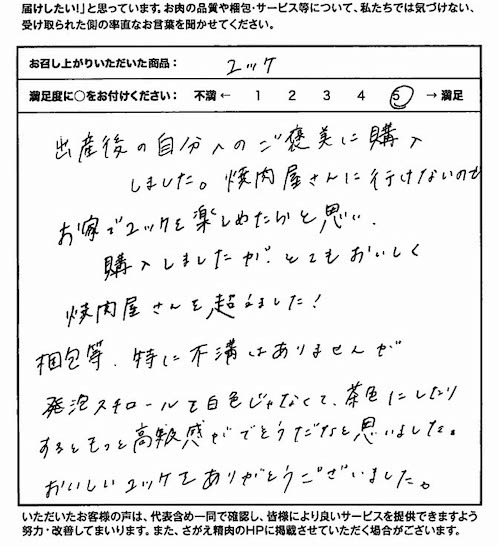 届けしたい!」と思っています。お肉の品質や梱包・サービス等について、私たちでは気づけない、
受け取られた側の率直なお言葉を聞かせてください。
お召し上がりいただいた商品： ユッケ
満足度に○をお付けください： 不満 ← 1 2 3 4 5 → 満足
出産後の自分へのご褒美に購入
しました。焼肉屋さんに行けないので
お家でユッケを楽しめたらと思い、
購入しましたが、とてもおいしく
焼肉屋さんを超えました!
梱包等、特に不満はありませんが
発泡スチロールを白色じゃなくて、茶色にしたり
するともっと高級感がでそうだなと思いました。
おいしいユッケをありがとうございました。
いただいたお客様の声は、代表含め一同で確認し、皆様により良いサービスを提供できますよう
努力・改善してまいります。また、さがえ精肉のHPに掲載させていただく場合がございます。